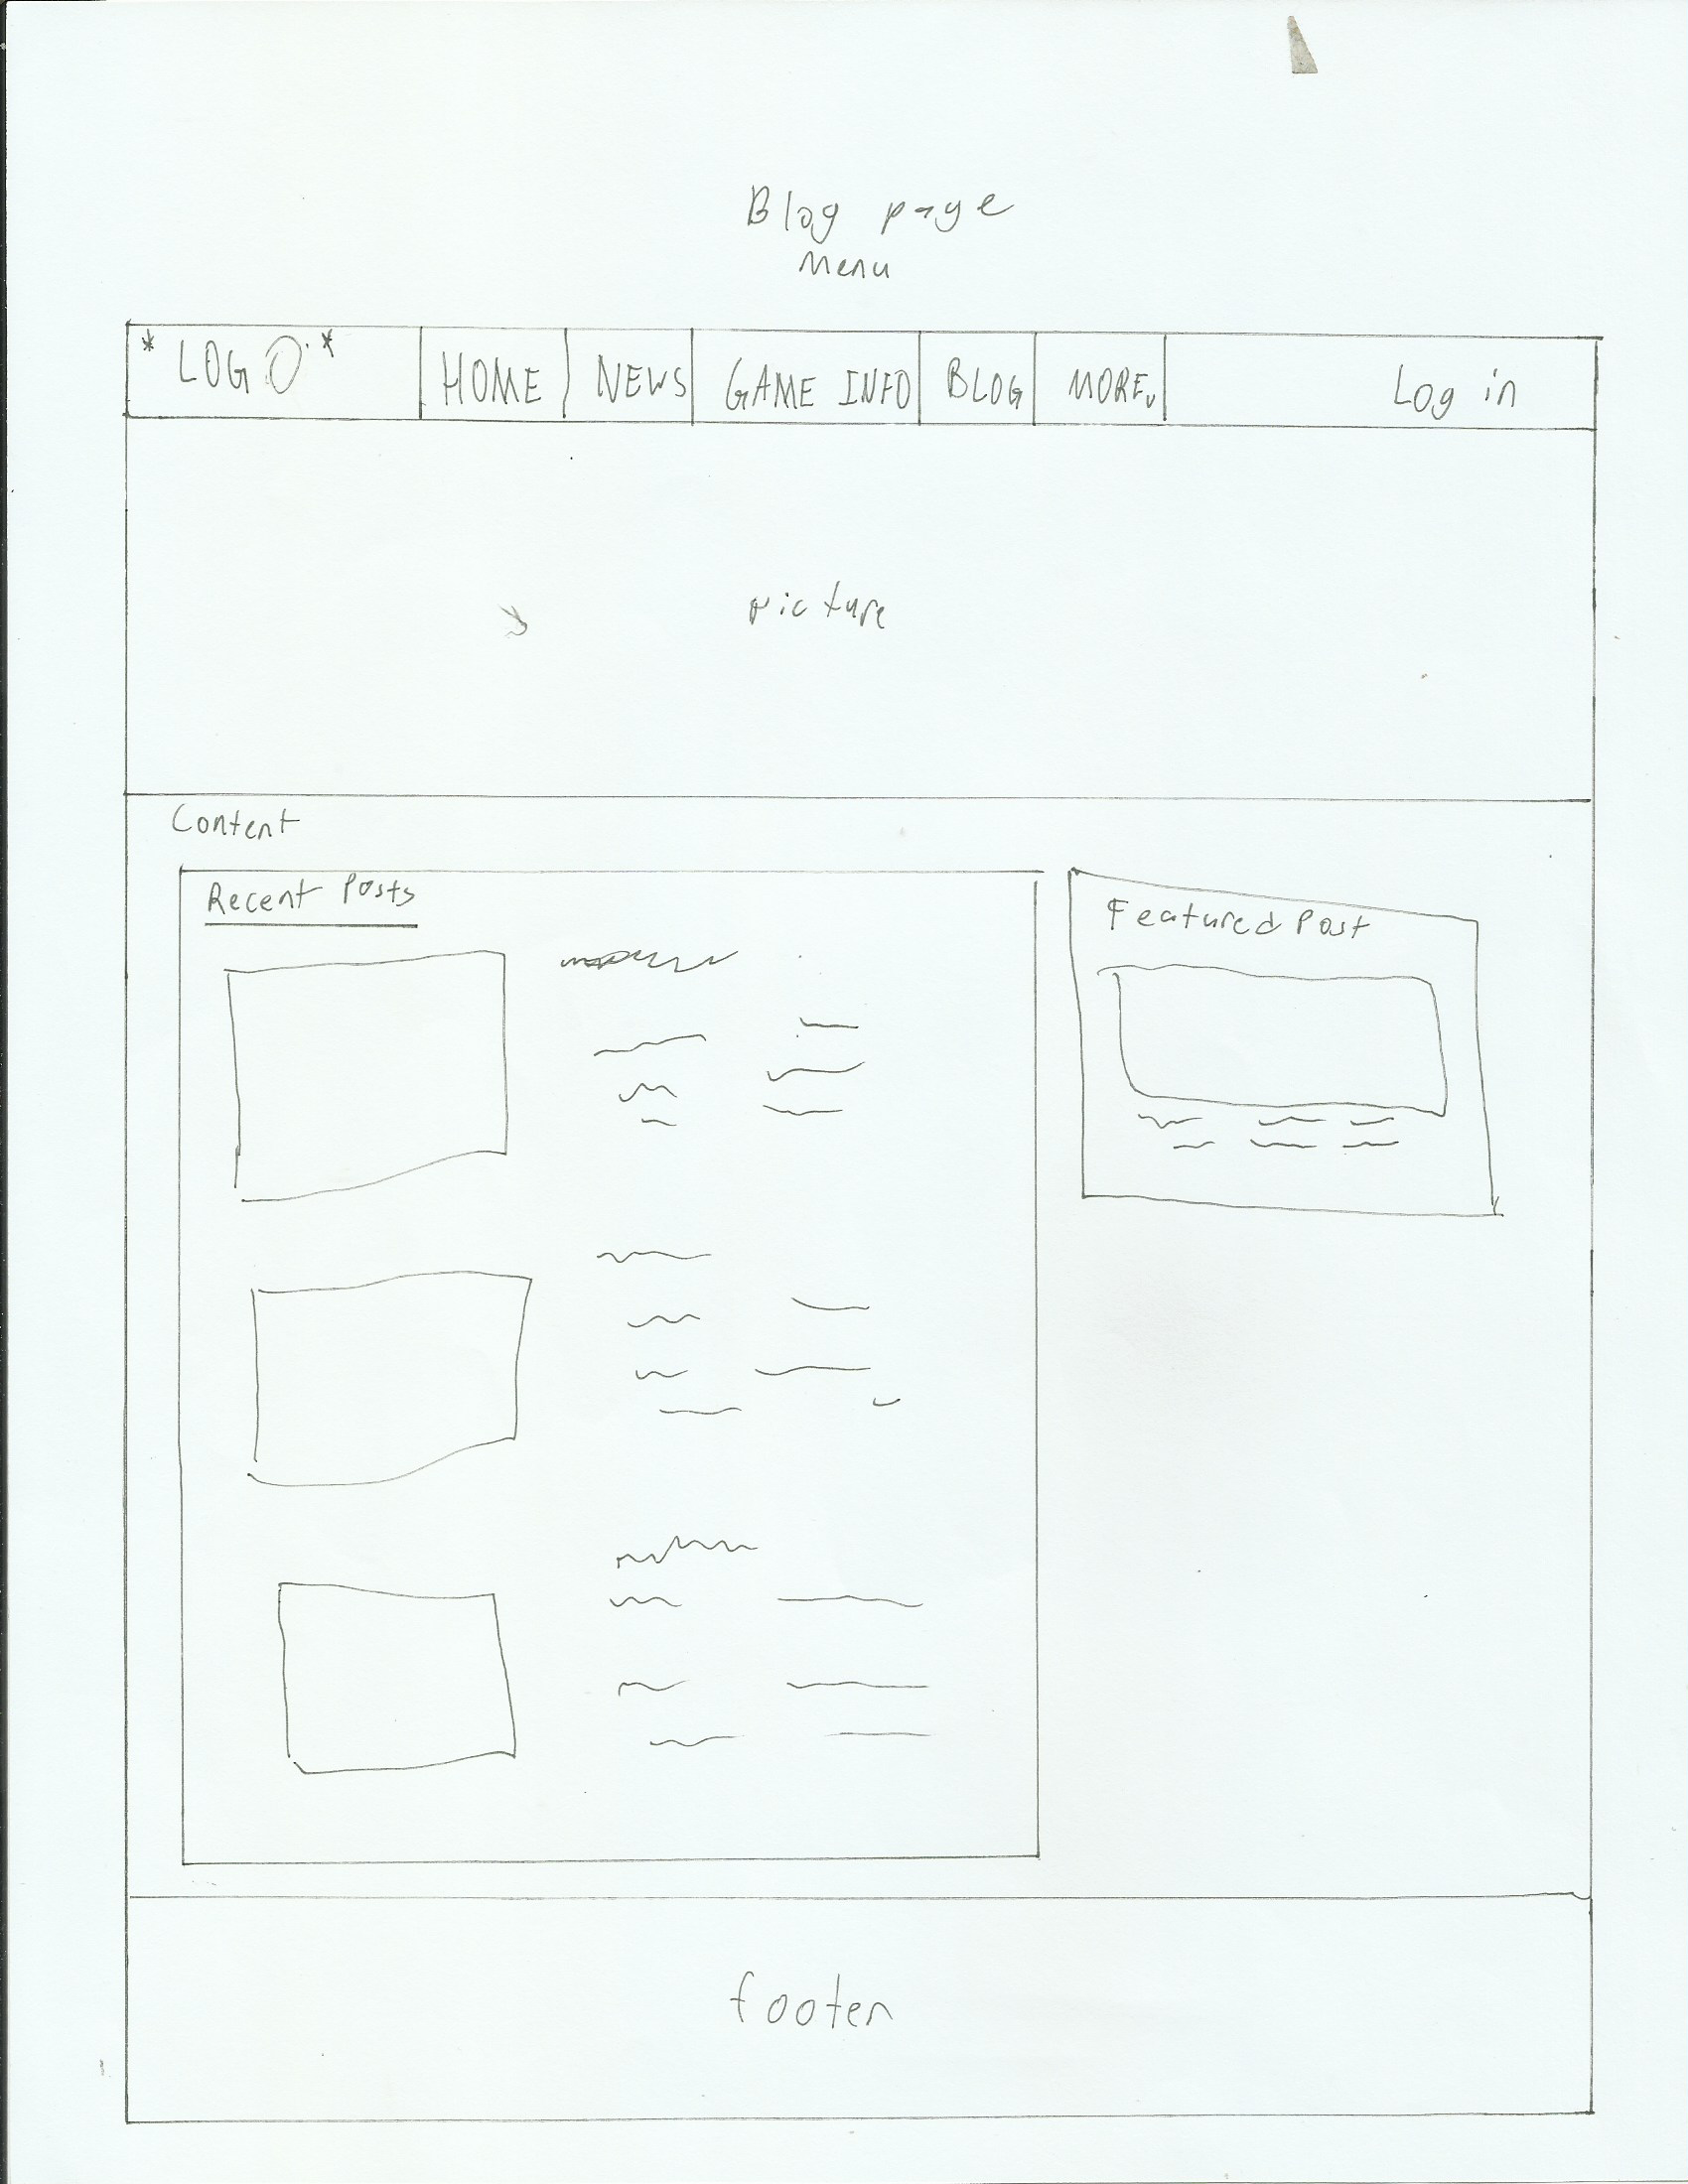 Blog page
Menu
* LOGO * HOME NEWS GAME INFO BLOG MORE Log in
picture
Content
Recent Posts
Featured Post
footer